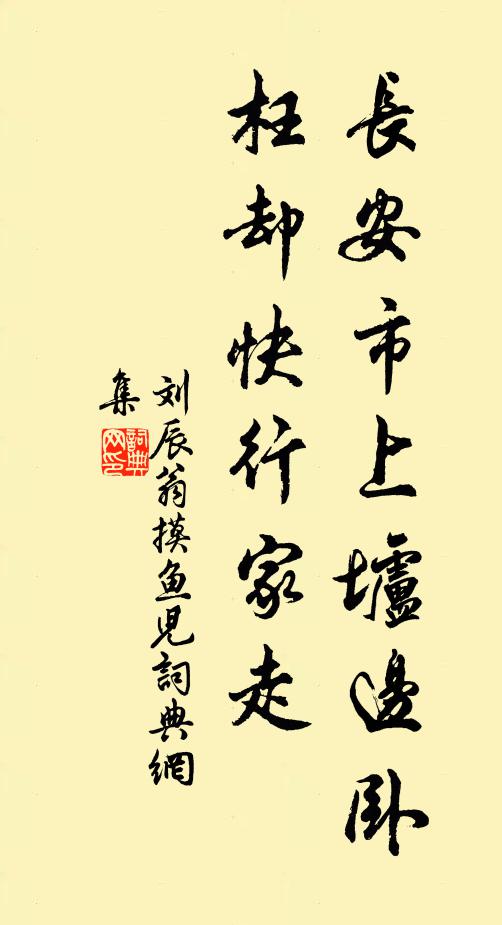 長安市上壚邊卧
枉却快行家走
刘辰翁摸鱼児詞典網
集
詞典
网印